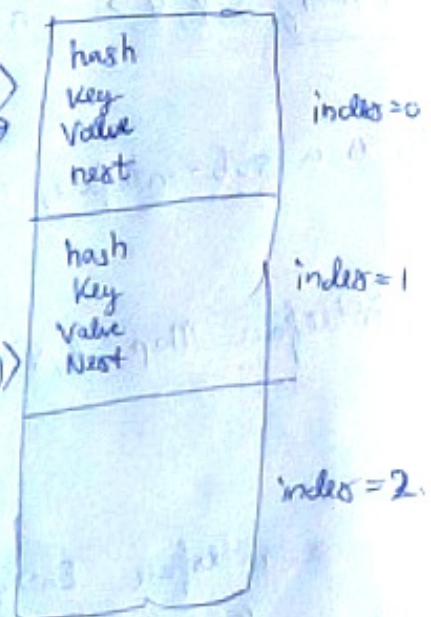 hash
Key
Value
next
index=0
hash
Key
Value
Next
index=1
index=2.